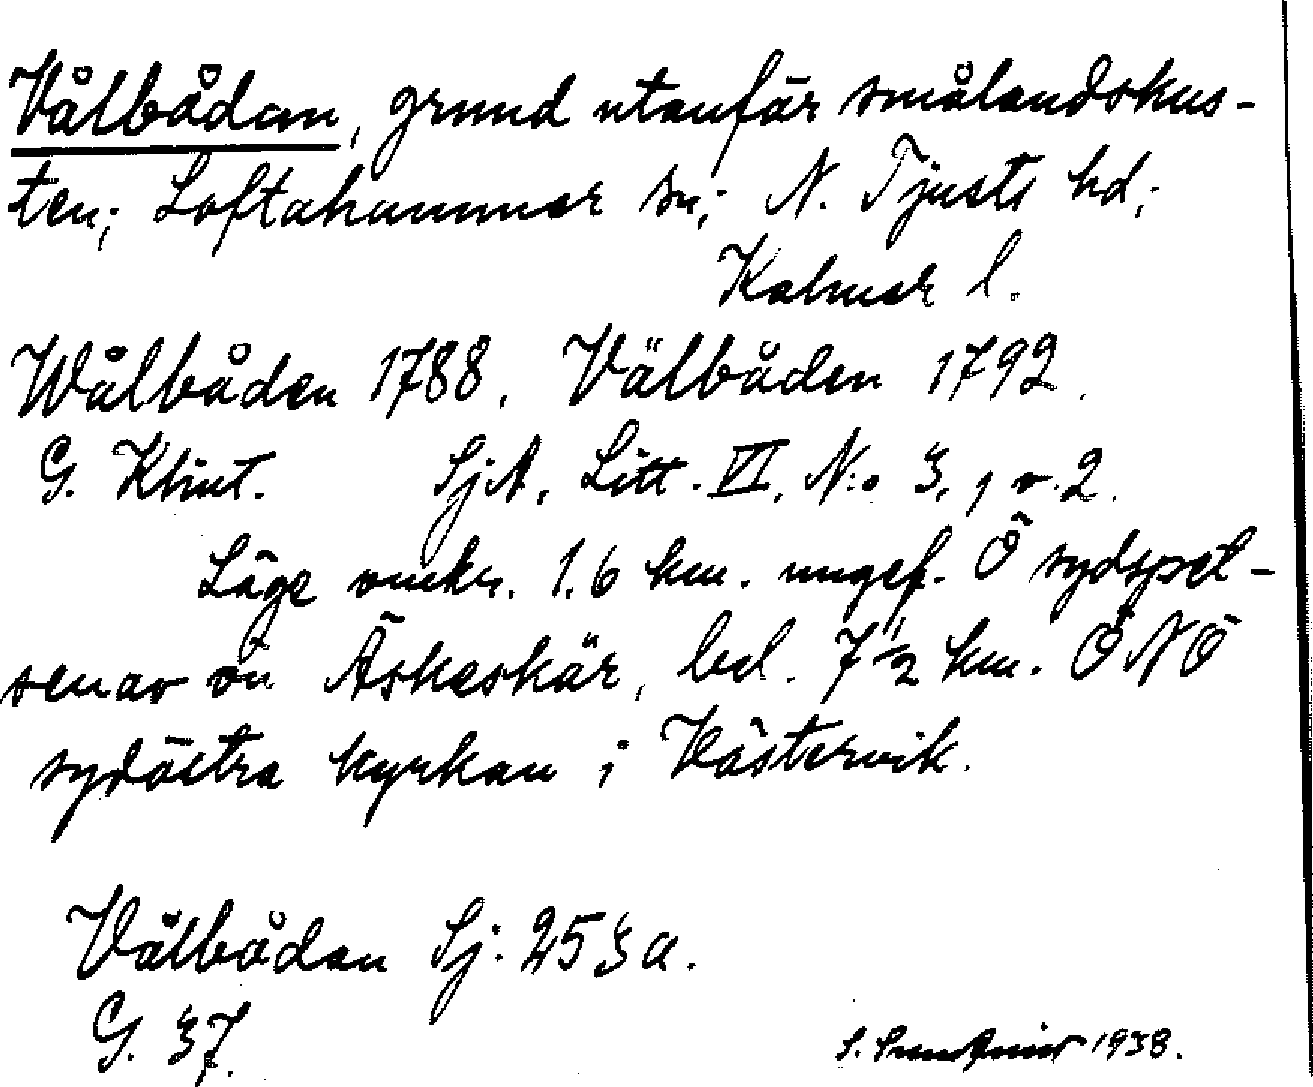 Vålbådan, grund utanför smålandskus-
ten; Loftahammar sn; N. Tjusts hd;
Kalmar l.
Wålbåden 1788. Välbåden 1792.
G. Klint. SjA, Litt. VI, N:o 3, 1 o. 2.
Läge omkr. 1.6 km. ungef. Ö sydspet-
sen av ön Äskeskär, bel. 7 1/2 km. ÖNÖ
sydöstra kyrkan i Västervik.
Vålbådan Sj: 253a.
G. 37.
S. 1938.